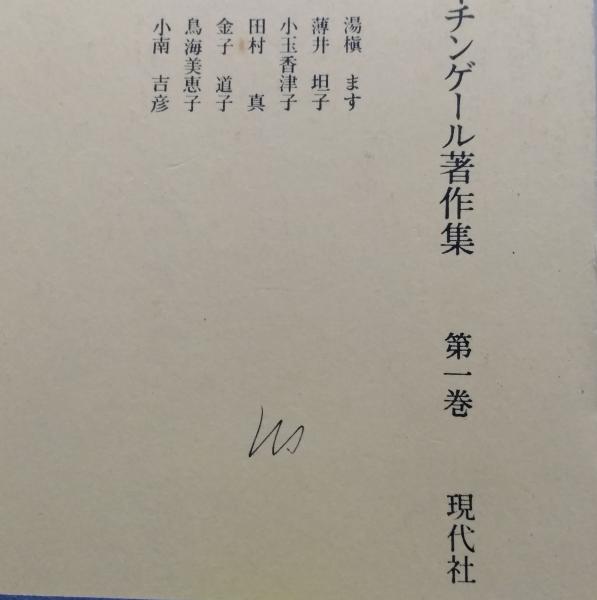 チンゲール著作集 第一巻 現代社
湯槇 ます
薄井 坦子
小玉香津子
田村 真
金子 道子
鳥海美恵子
小南 吉彦